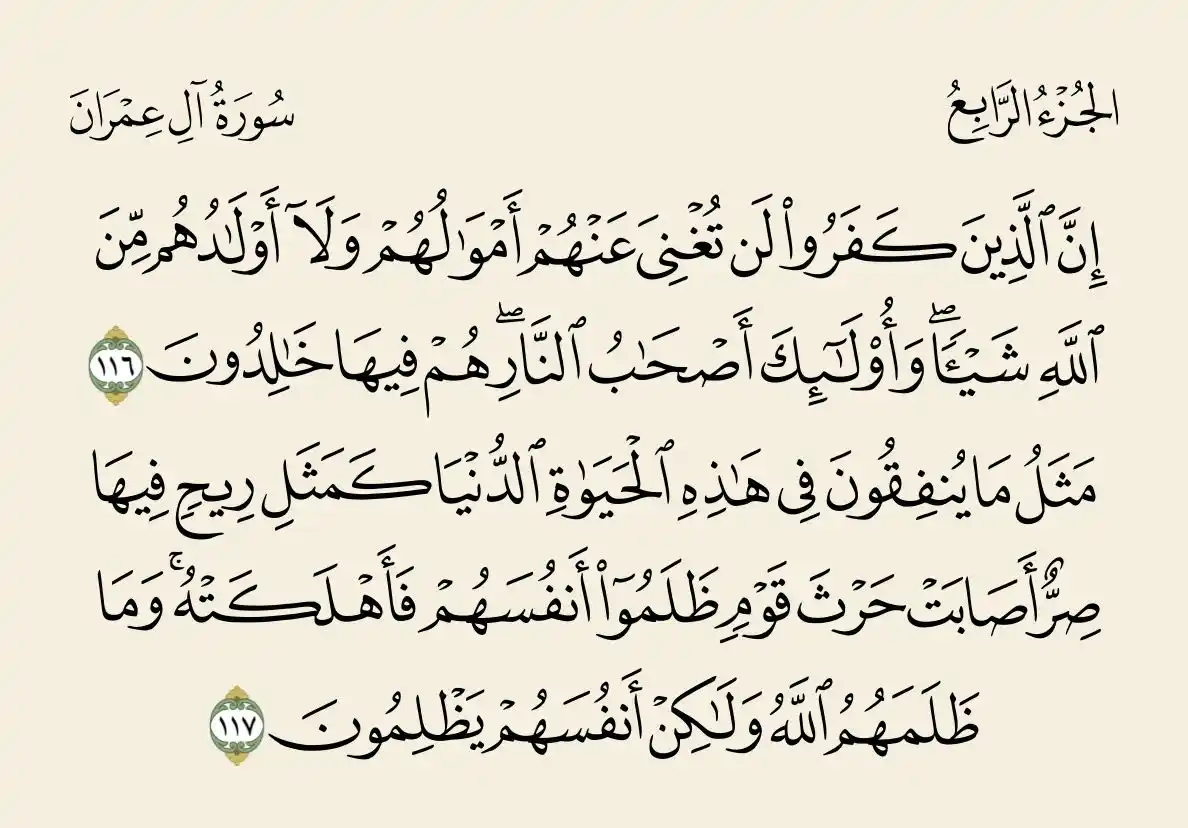 الجُزْءُ الرَّابِعُ
سُورَةُ آلِ عِمْرَانَ
إِنَّ ٱلَّذِينَ كَفَرُوا۟ لَن تُغْنِىَ عَنْهُمْ أَمْوَٰلُهُمْ وَلَآ أَوْلَـٰدُهُم مِّنَ
ٱللَّهِ شَيْـًٔا ۖ وَأُو۟لَـٰٓئِكَ أَصْحَـٰبُ ٱلنَّارِ ۖ هُمْ فِيهَا خَـٰلِدُونَ ١١٦
مَثَلُ مَا يُنفِقُونَ فِى هَـٰذِهِ ٱلْحَيَوٰةِ ٱلدُّنْيَا كَمَثَلِ رِيحٍ فِيهَا
صِرٌّ أَصَابَتْ حَرْثَ قَوْمٍ ظَلَمُوٓا۟ أَنفُسَهُمْ فَأَهْلَكَتْهُ ۚ وَمَا
ظَلَمَهُمُ ٱللَّهُ وَلَـٰكِنْ أَنفُسَهُمْ يَظْلِمُونَ ١١٧